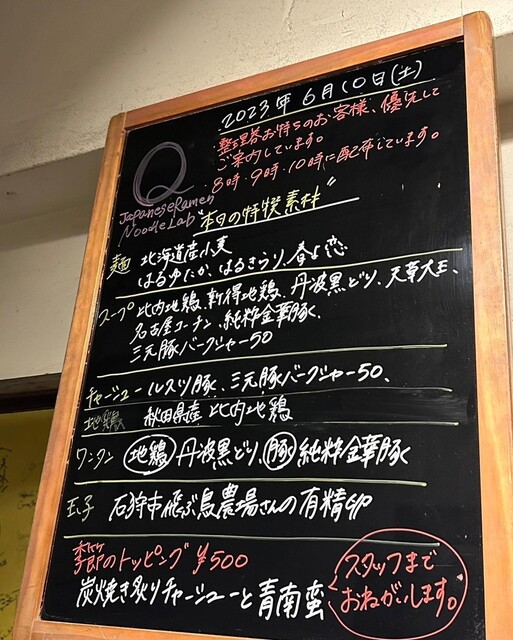 2023年6月10日(土)
・整理券お持ちのお客様、優先して
ご案内しています。
・8時・9時・10時に配布しています。
Q
Japanese Ramen
Noodle Lab
"本日の特撰素材"
麺 北海道産小麦
はるゆたか、はるきらり、春よ恋
スープ 比内地鶏、新得地鶏、丹波黒どり、天草大王、
名古屋コーチン、純粋金華豚、
三元豚バークシャー50
チャーシュー ルスツ豚、三元豚バークシャー50、
地鶏 秋田県産 比内地鶏
ワンタン 地鶏 丹波黒どり、豚 純粋金華豚
玉子 石狩市飛ぶ鳥農場さんの有精卵
季節のトッピング ¥500
炭焼き炙りチャーシューと青南蛮
スタッフまで
おねがいします。